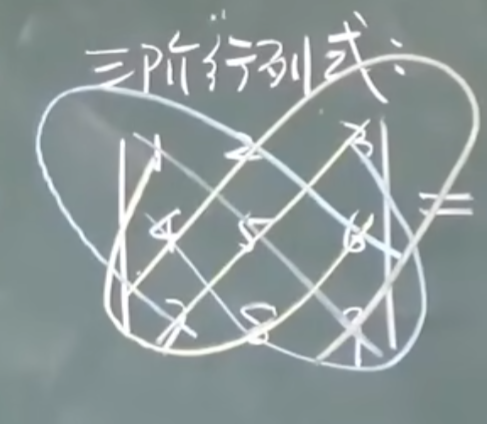 三阶行列式:
1 2 3
4 5 6 =
7 8 9